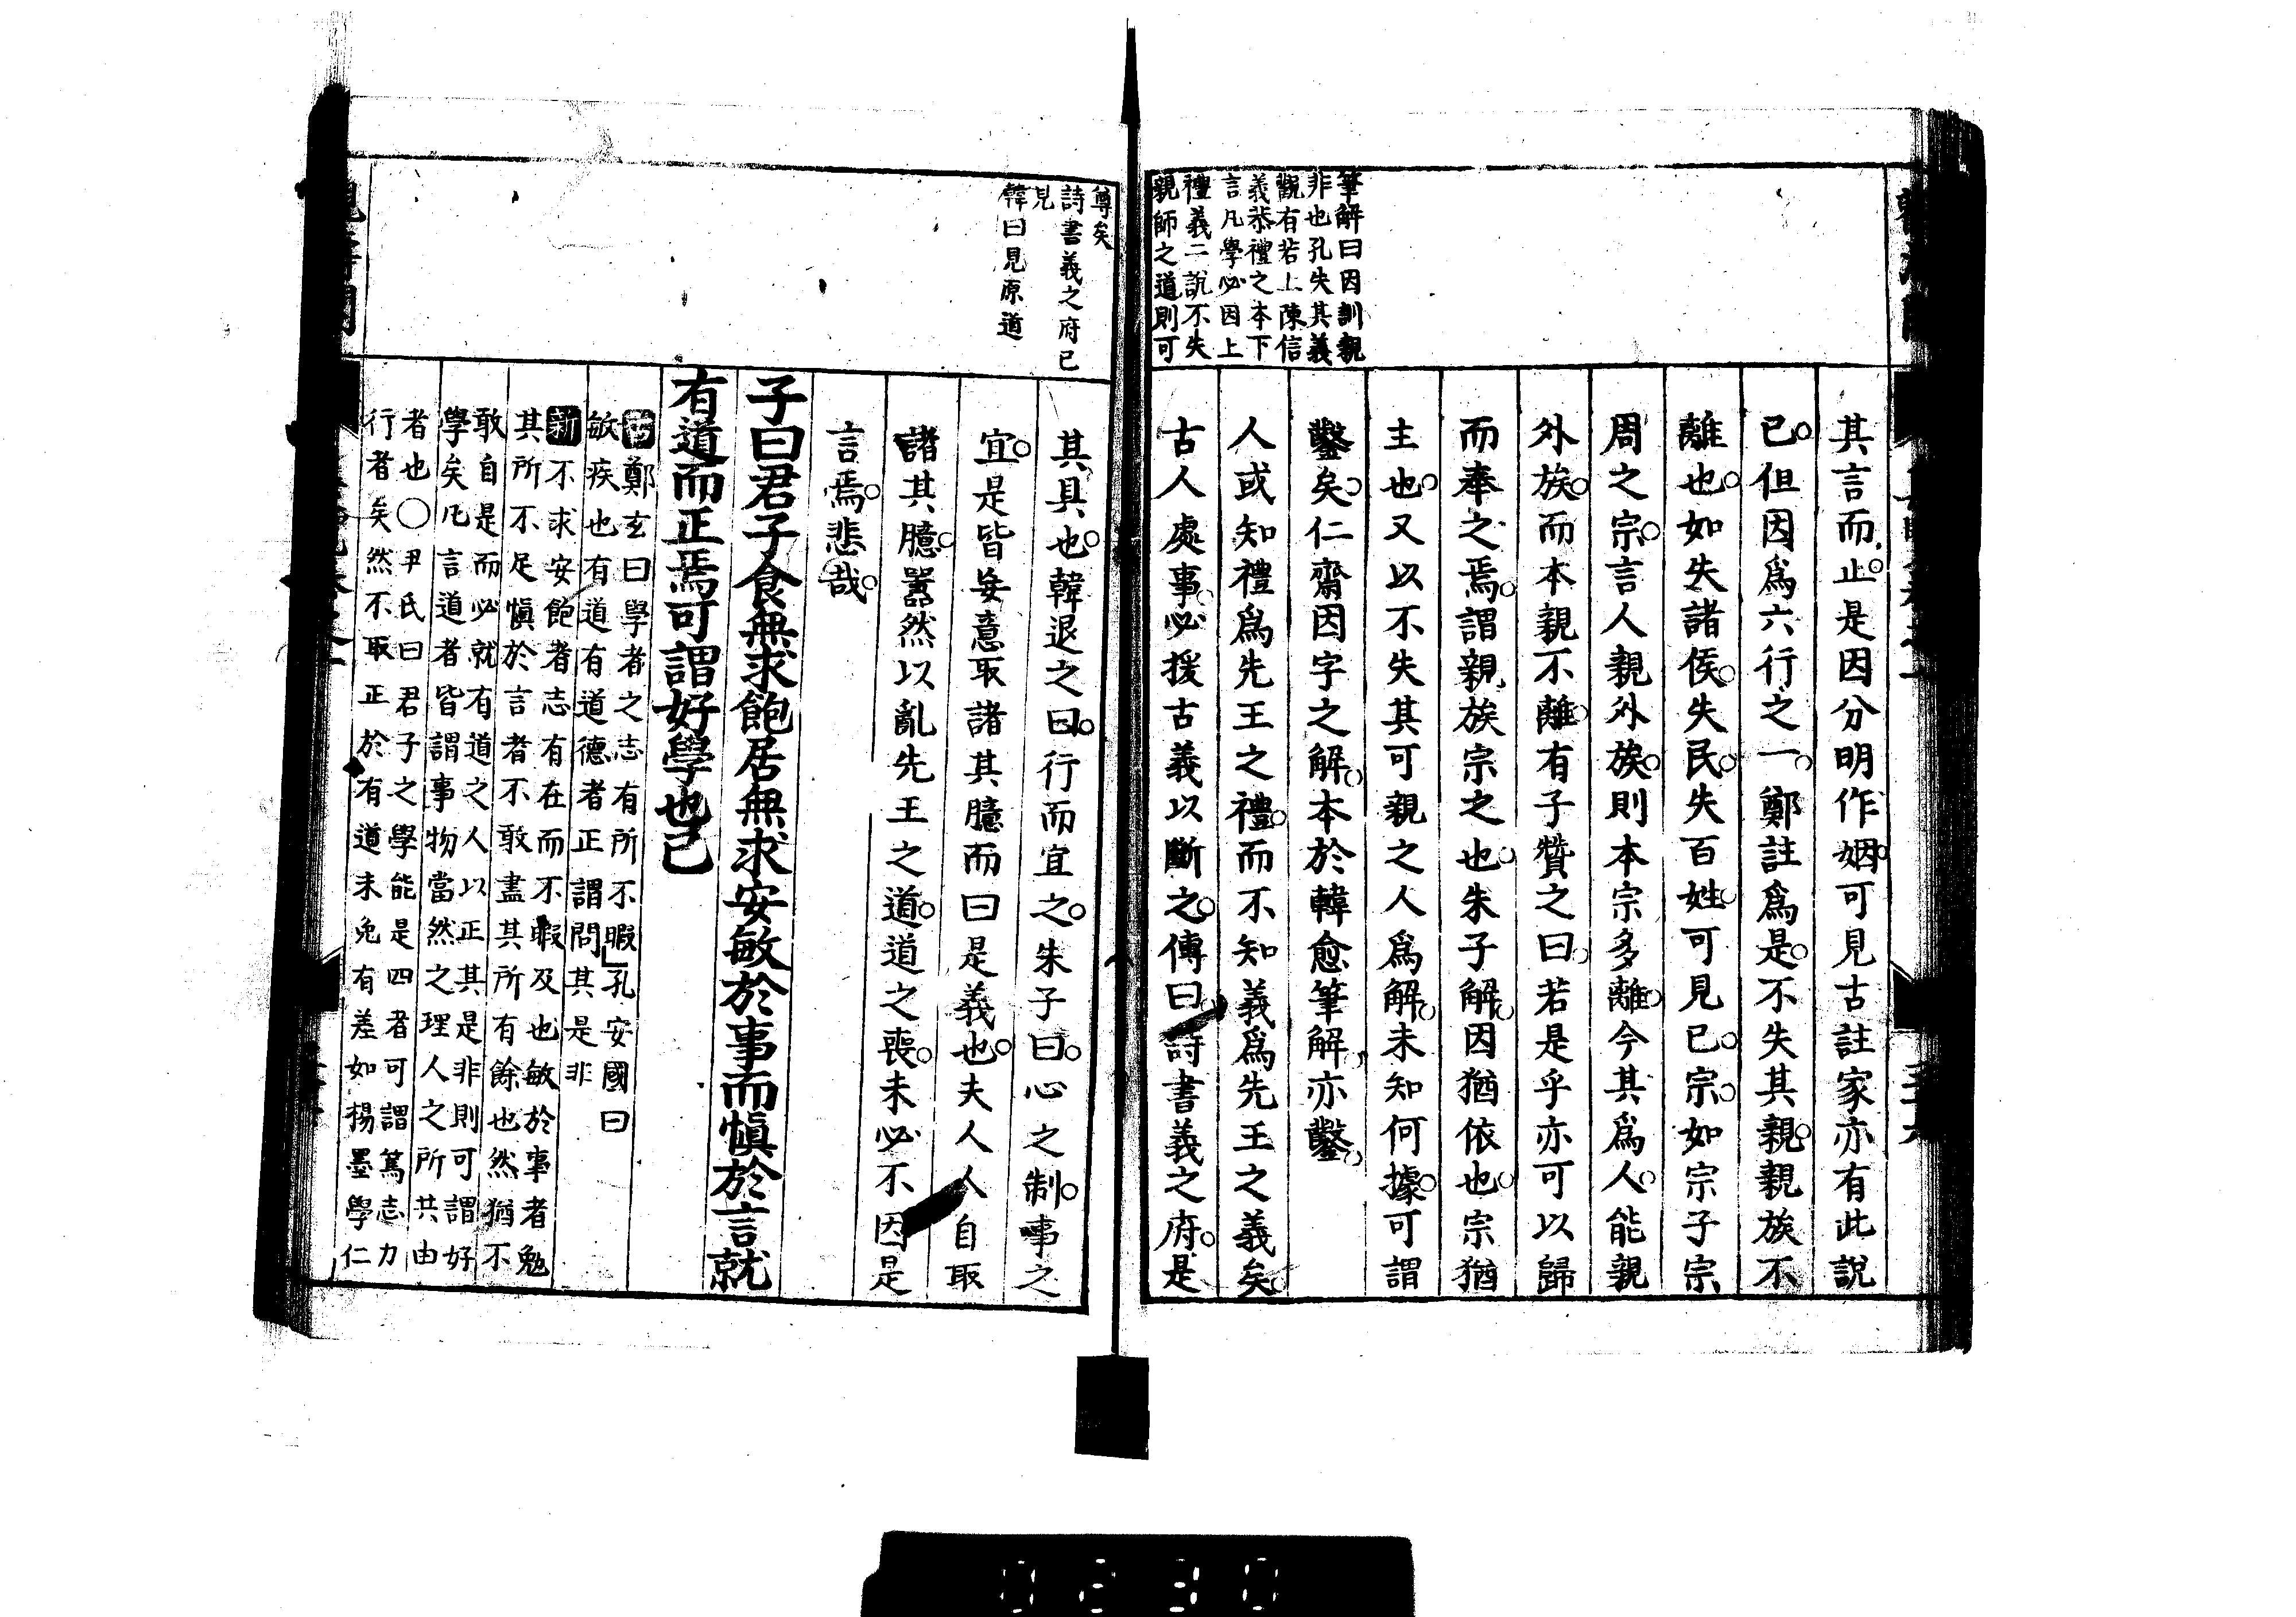 筆解曰因訓親
非也孔失其義
觀有若上陳信
義恭禮之本下
言凡學必因上
禮義二說不失
親師之道則可
其言而止是因分明作姻可見古註家亦有此說
已但因爲六行之一鄭註爲是不失其親親族不
離也如失諸侯失民失百姓可見已宗如宗子宗
周之宗言人親外族則本宗多離今其爲人能親
外族而本親不離有子贊之曰若是乎亦可以歸
而奉之焉謂親族宗之也朱子解因猶依也宗猶
主也又以不失其可親之人爲解未知何據可謂
鑿矣仁齋因字之解本於韓愈筆解亦鑿
人或知禮爲先王之禮而不知義爲先王之義矣
古人處事必援古義以斷之傳曰詩書義之府是
尊矣
詩書義之府已
見
韓曰見原道
其具也韓退之曰行而宜之朱子曰心之制事之
宜是皆妄意取諸其臆而曰是義也夫人人自取
諸其臆囂然以亂先王之道道之喪未必不因是
言焉悲哉
子曰君子食無求飽居無求安敏於事而愼於言就
有道而正焉可謂好學也已
古鄭玄曰學者之志有所不暇孔安國曰
敏疾也有道有道德者正謂問其是非
新不求安飽者志有在而不暇及也敏於事者勉
其所不足愼於言者不敢盡其所有餘也然猶不
敢自是而必就有道之人以正其是非則可謂好
學矣凡言道者皆謂事物當然之理人之所共由
者也○尹氏曰君子之學能是四者可謂篤志力
行者矣然不取正於有道未免有差如楊墨學仁
0230